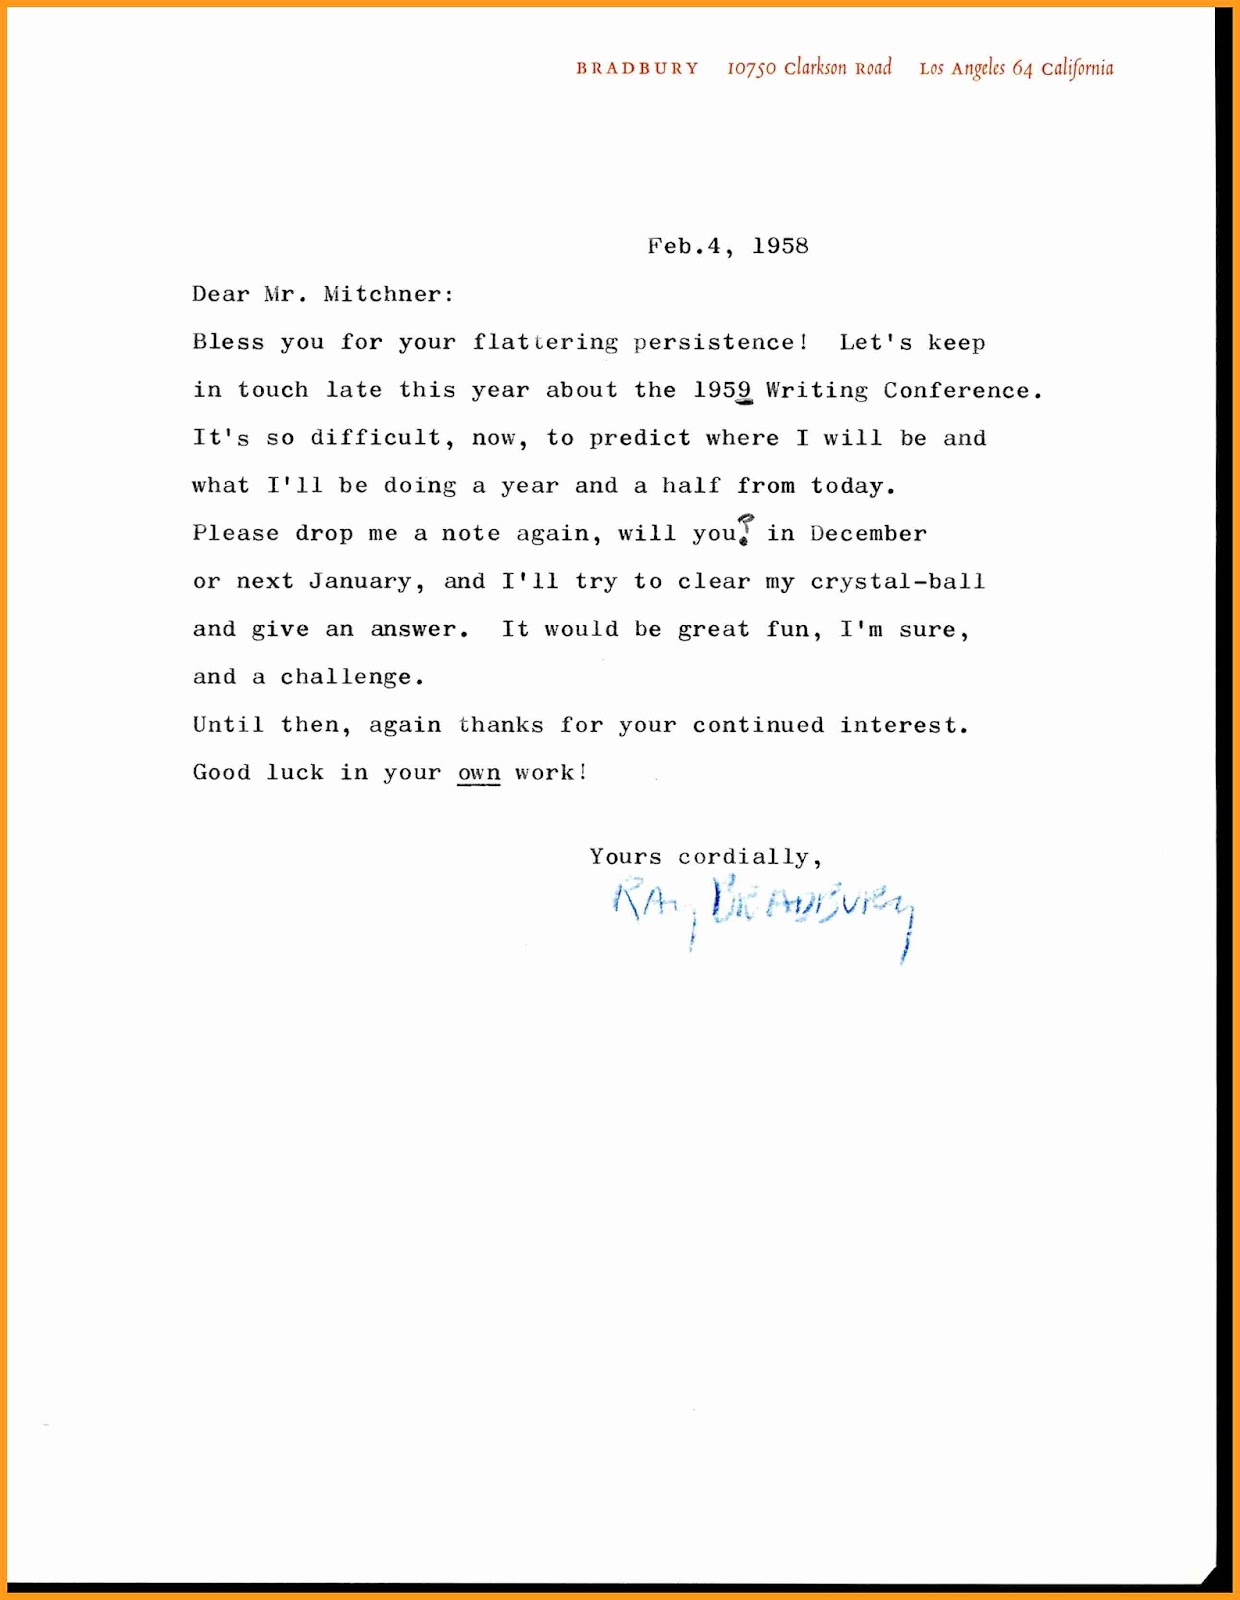 BRADBURY 10750 Clarkson Road Los Angeles 64 California
Feb.4, 1958
Dear Mr. Mitchner:
Bless you for your flattering persistence! Let's keep
in touch late this year about the 1959 Writing Conference.
It's so difficult, now, to predict where I will be and
what I'll be doing a year and a half from today.
Please drop me a note again, will you? in December
or next January, and I'll try to clear my crystal-ball
and give an answer. It would be great fun, I'm sure,
and a challenge.
Until then, again thanks for your continued interest.
Good luck in your own work!
Yours cordially,
RAy BRADBURy